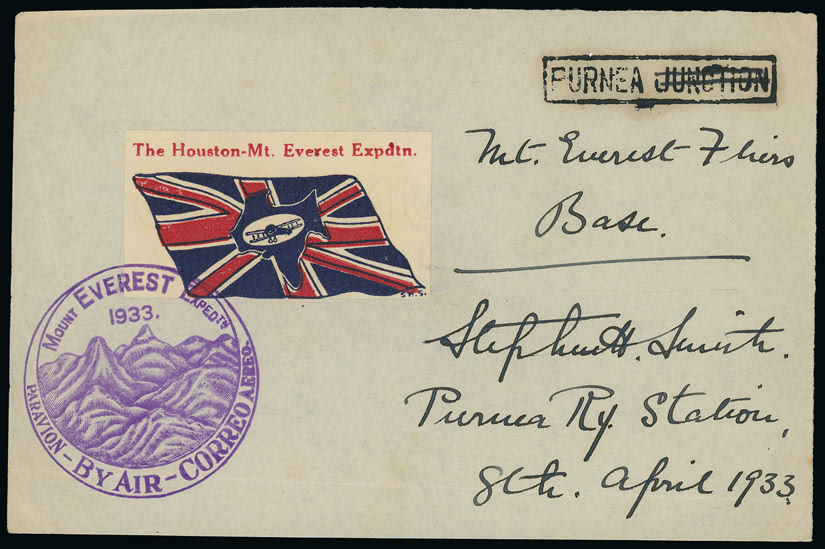 PURNEA JUNCTION
The Houston-Mt. Everest Expdtn.
S.H.S.
Mt. Everest Fliers
Base.
MOUNT EVEREST EXPEDTN
1933.
PARAVION - BY AIR - CORREO AEREO.
Stephen H. Smith.
Purnea Ry. Station,
8th. April 1933.